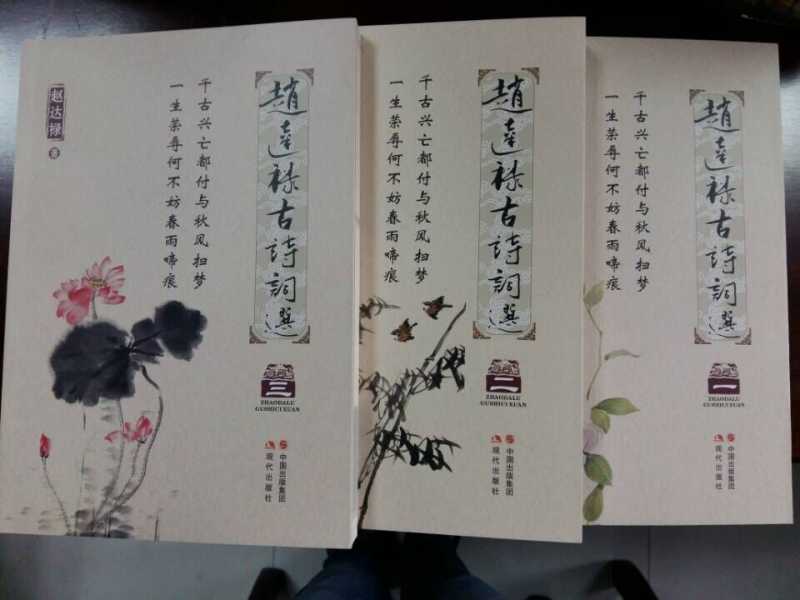 趙達祿古詩詞選
千古兴亡都付与秋风扫梦
一生荣辱何不妨春雨啼痕
赵达禄 著
三
ZHAODALU
GUSHICIXUAN
中国出版集团
现代出版社
趙達祿古詩詞選
千古兴亡都付与秋风扫梦
一生荣辱何不妨春雨啼痕
二
ZHAODALU
GUSHICIXUAN
中国出版集团
现代出版社
趙達祿古詩詞選
千古兴亡都付与秋风扫梦
一生荣辱何不妨春雨啼痕
一
ZHAODALU
GUSHICIXUAN
中国出版集团
现代出版社